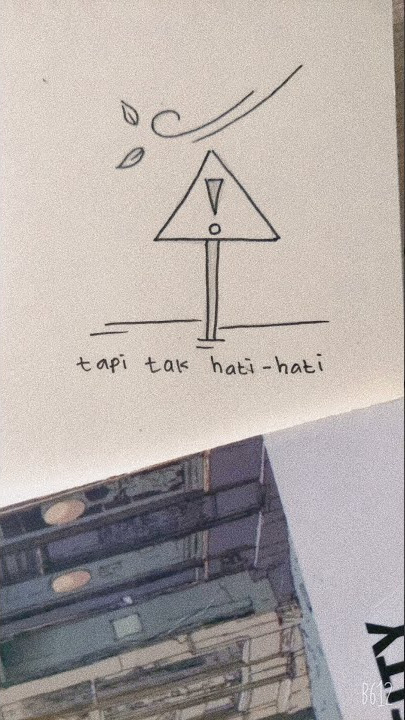 tapi tak hati-hati
B612